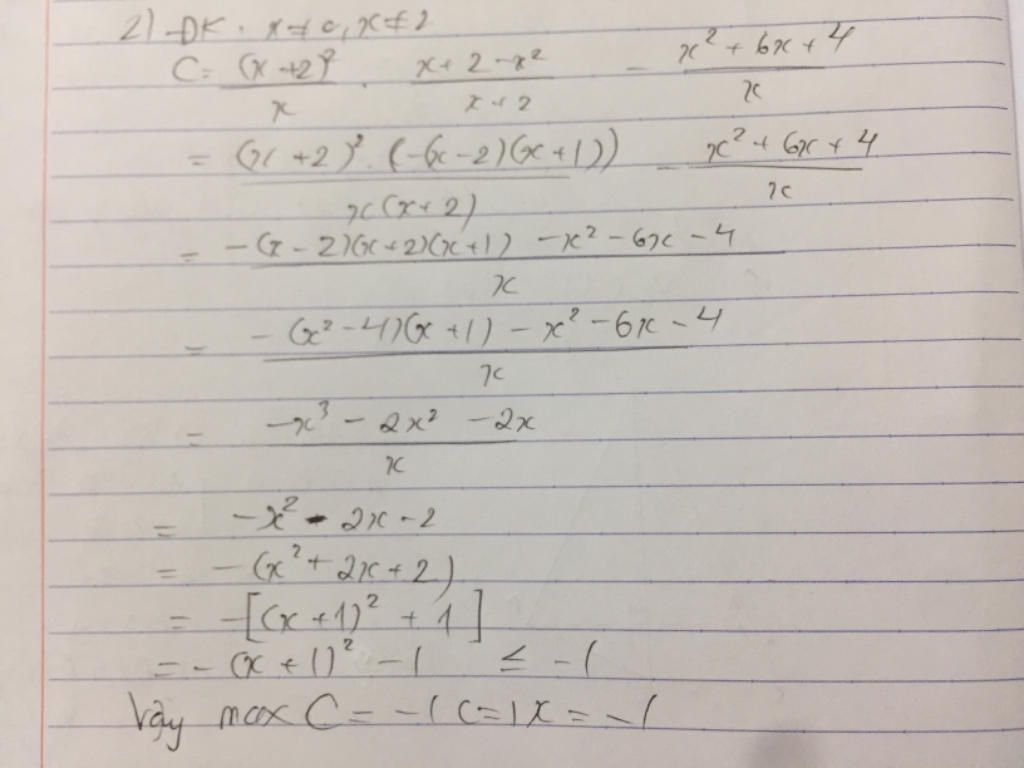 2) ĐK: x ≠ 0, x ≠ 2
C = (x+2)²/x . (x + 2 - x²)/(x + 2) - (x² + 6x + 4)/x
= ((x + 2)² . (-(x - 2)(x + 1)))/(x(x + 2)) - (x² + 6x + 4)/x
= (-(x - 2)(x + 2)(x + 1) - x² - 6x - 4)/x
= (-(x² - 4)(x + 1) - x² - 6x - 4)/x
= (-x³ - 2x² - 2x)/x
= -x² - 2x - 2
= -(x² + 2x + 2)
= -[(x + 1)² + 1]
= -(x + 1)² - 1 ≤ -1
Vậy max C = -1 <=> x = -1